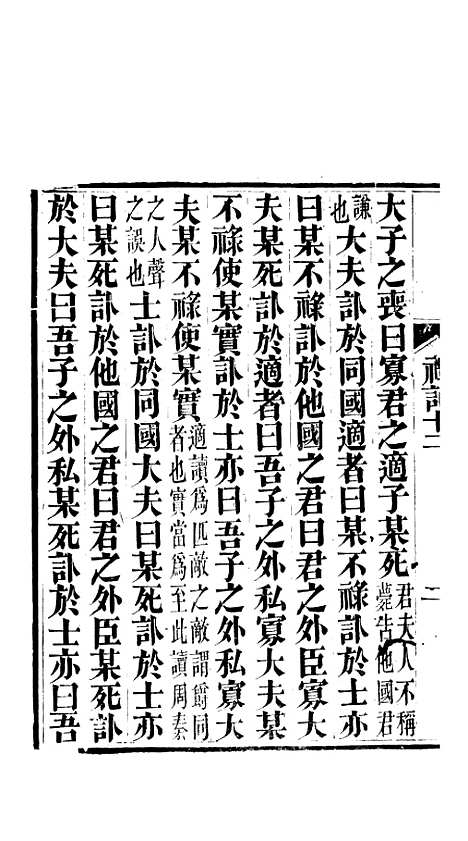 禮記十二
二
大子之喪曰寡君之適子某死君夫人不稱薨告他國君
謙也大夫訃於同國適者曰某不祿訃於士亦
曰某不祿訃於他國之君曰君之外臣寡大
夫某死訃於適者曰吾子之外私寡大夫某
不祿使某實訃於士亦曰吾子之外私寡大
夫某不祿使某實適讀爲匹敵之敵謂爵同者也實當爲至此讀周秦
之人聲之誤也士訃於同國大夫曰某死訃於士亦
曰某死訃於他國之君曰君之外臣某死訃
於大夫曰吾子之外私某死訃於士亦曰吾